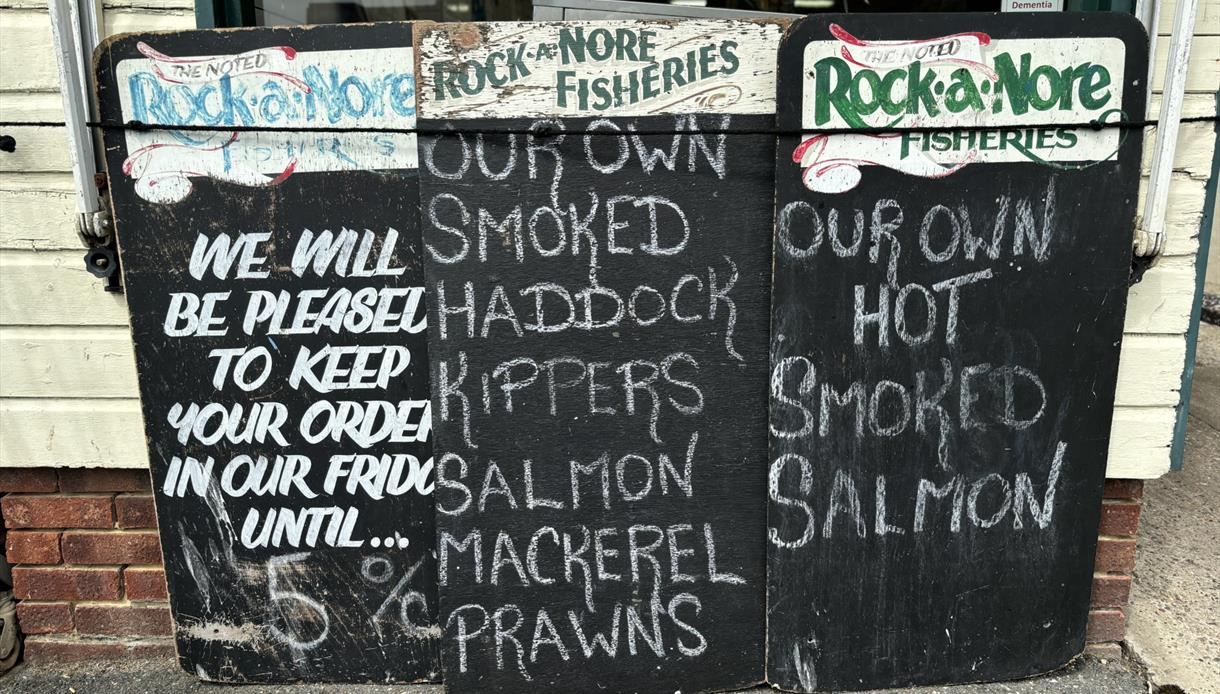 Dementia
THE NOTED
Rock·a·Nore
FISHERIES
WE WILL
BE PLEASED
TO KEEP
YOUR ORDER
IN OUR FRIDG
UNTIL...
5
ROCK-A-NORE
FISHERIES
OUR OWN
SMOKED
HADDOCK
KIPPERS
SALMON
MACKEREL
PRAWNS
THE NOTED
Rock·a·Nore
FISHERIES
OUR OWN
HOT
SMOKED
SALMON